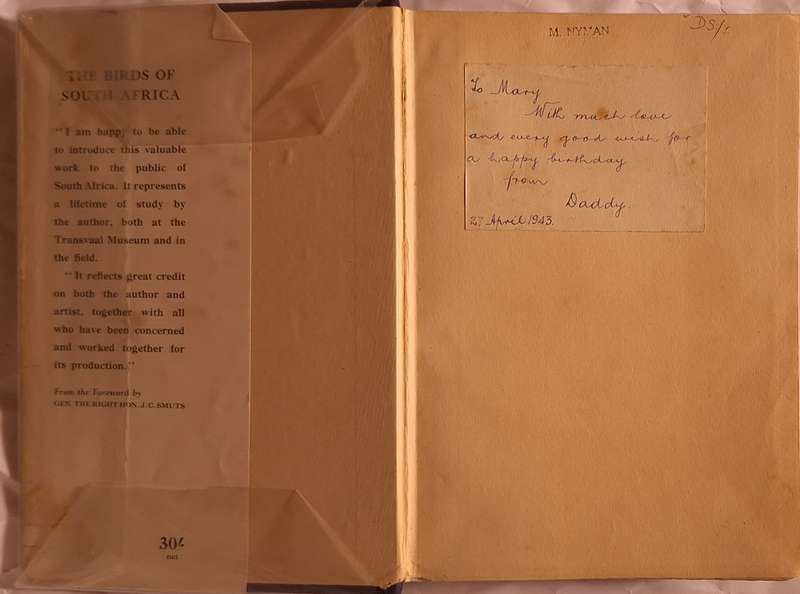 THE BIRDS OF
SOUTH AFRICA
"I am happy to be able
to introduce this valuable
work to the public of
South Africa. It represents
a lifetime of study by
the author, both at the
Transvaal Museum and in
the field.
"It reflects great credit
on both the author and
artist, together with all
who have been concerned
and worked together for
its production."
From the Foreword by
GEN. THE RIGHT HON. J. C. SMUTS
30/-
NET
M. NYMAN
To Mary
With much love
and every good wish for
a happy birthday
from
Daddy.
27 April 1943.